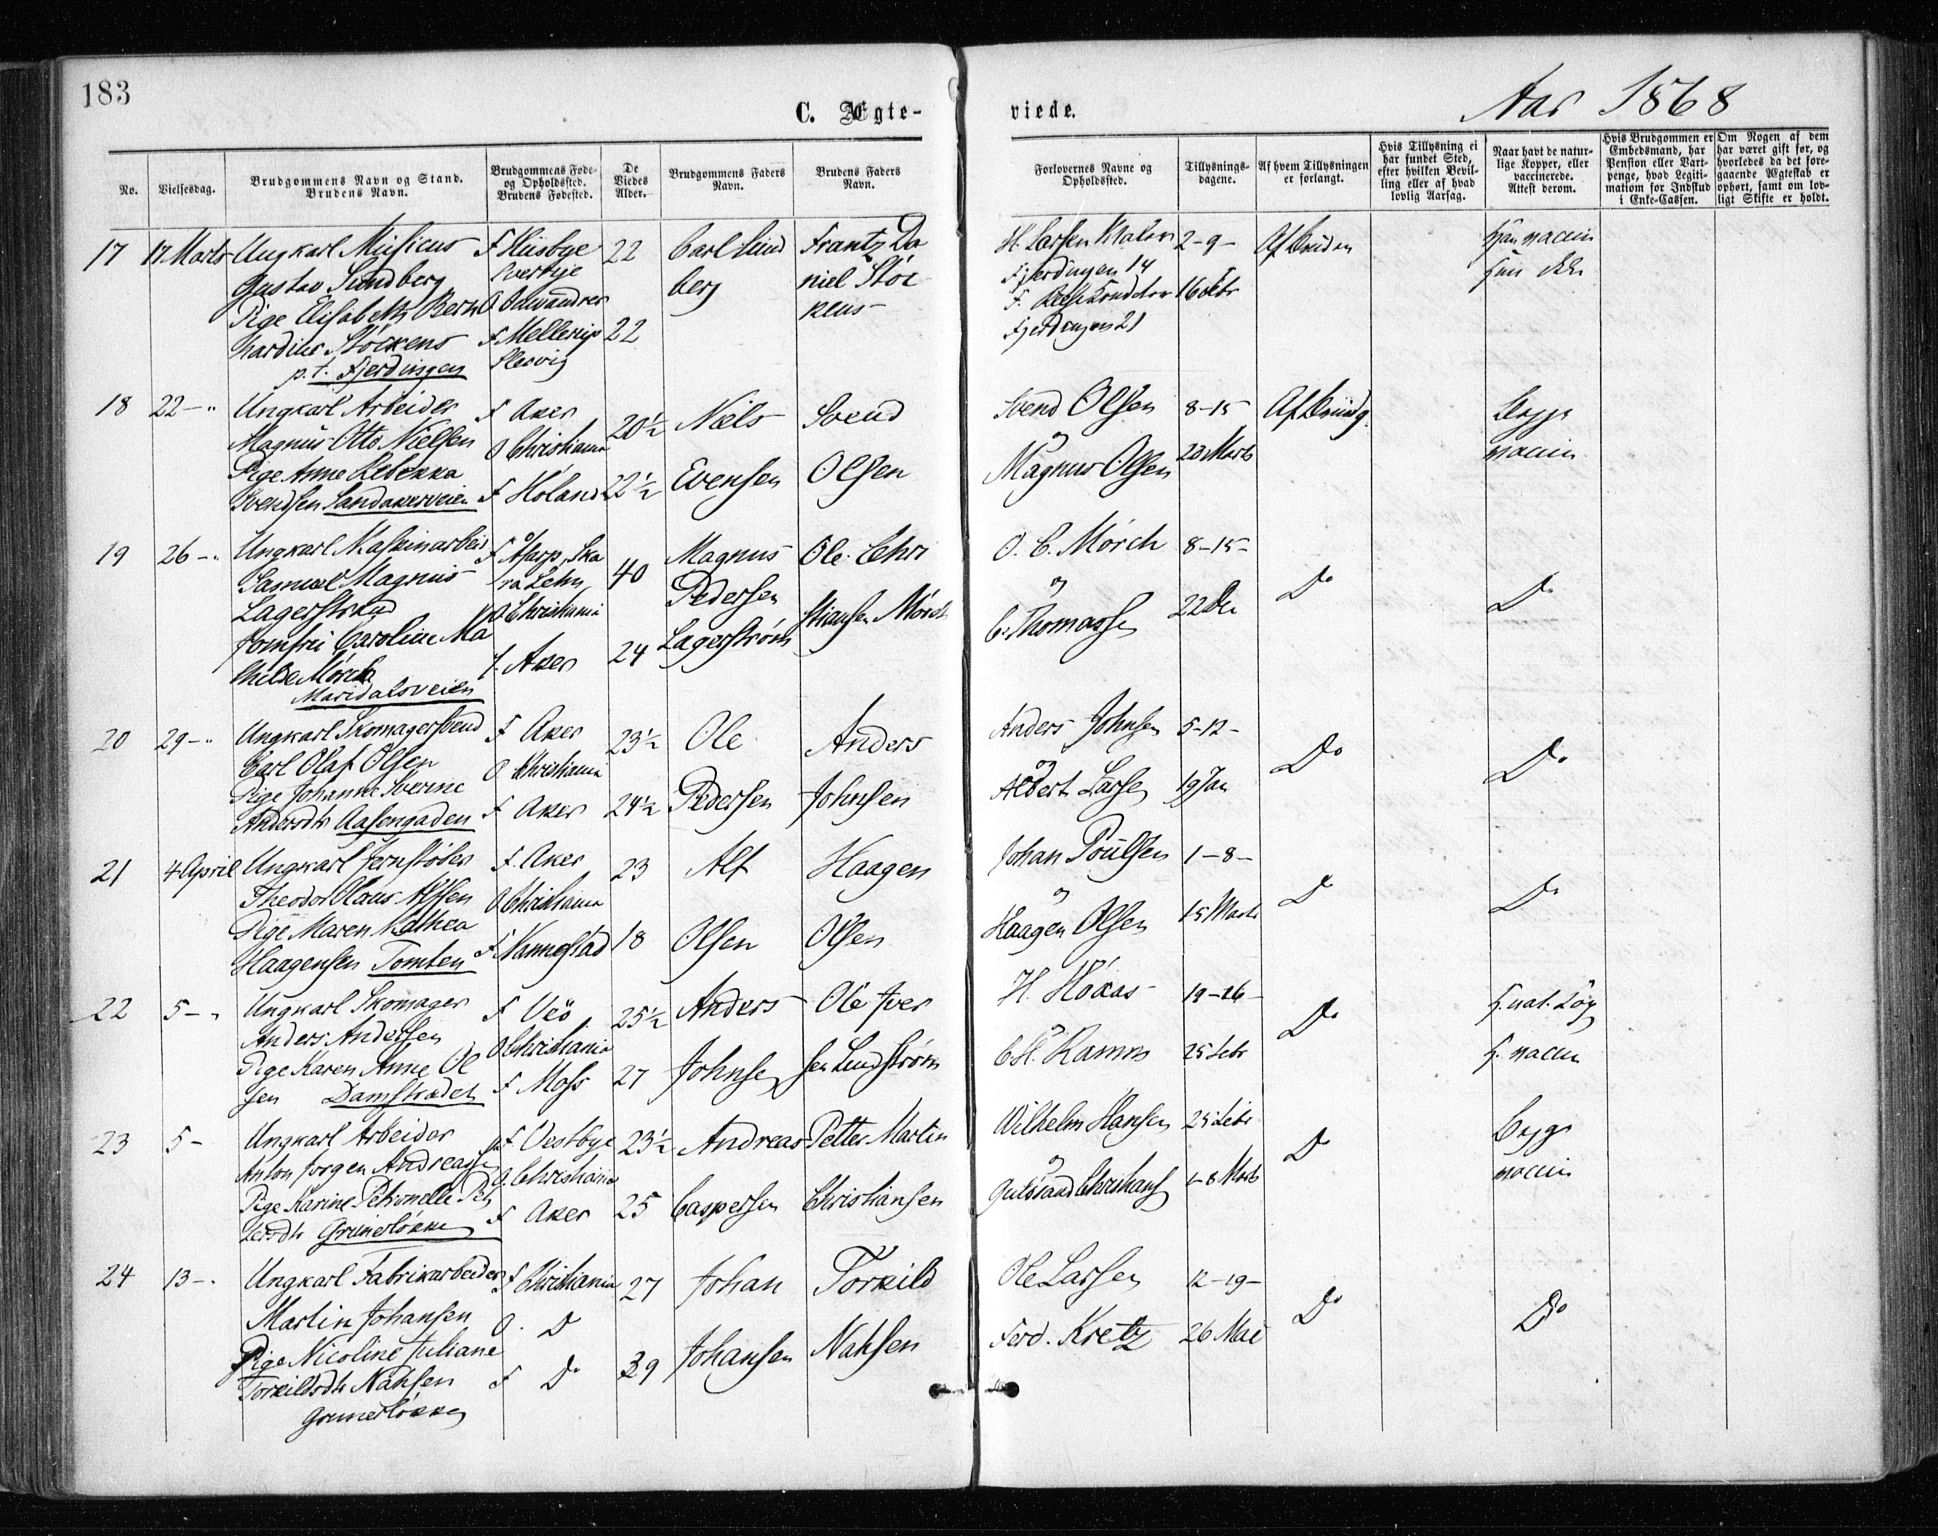 183
C. Ægte-
viede.
Aar 1868
No.
Vielsesdag.
Brudgommens Navn og Stand.
Brudens Navn.
Brudgommens Føde-
og Opholdssted.
Brudens Fødested.
De
Viedes
Alder.
Brudgommens Faders
Navn.
Brudens Faders
Navn.
Forlovernes Navne og
Opholdssted.
Tillysnings-
dagene.
Af hvem Tillysningen
er forlangt.
Hvis Tillysning ei
har fundet Sted,
efter hvilken Bevil-
ling eller af hvad
lovlig Aarsag.
Naar havt de natur-
lige Kopper, eller
vaccinerede.
Attest derom.
Hvis Brudgommen er
Embedsmand, har
Pension eller Vart-
penge, hvad Legiti-
mation for Indskud
i Enke-Cassen.
Om Nogen af dem
har været gift før, og
hvorledes da det fore-
gaaende Ægteskab er
ophørt, samt om lov-
ligt Skifte er holdt.
17
17 Marts
Ungkarl Musicus
Gustav Lundberg
Pige Elisabeth Bern
hardine Stöckens
p.t. Fjerdingen
F Husbye
O Odvandrer
F Mellerup
Slesvig
22
22
Carl Lund
berg
Frantz Da
niel Stöc
kens
H. Larsen Maler
Fjerdingen 14
Fjerdingen 21
2-9-
16 Febr
Af Bruden
Han vaccin
Hun ikke
18
22-"
Ungkarl Arbeider
Magnus Otto Nielsen
Pige Anne Rebekka
Svendsen Sandakerveien
F Aker
O Christiania
F Höland
20½
22½
Niels
Evensen
Svend
Olsen
Svend Olsen
og
Magnus Olsen
8-15
22 Marts
Af Brudg.
Begge
vaccin
19
26-"
Ungkarl Maskinarbeid
Samuel Magnus
Lagerström
Jomfru Caroline Ma
thilde Mörch
Maridalsveien
F Åsarp, Ska
ra Lehn,
O Christiania
F. Aker
40
24
Magnus
Pedersen
Lagerström
Ole Chri
stiansen Mörch
O. C. Mörch
og
C. Thomassen
8-15-
22 De
Do
Do
20
29-"
Ungkarl Skomagersvend
Carl Olaf Olsen
Pige Johanne Sverine
Andersdtr Aasengaden
F Aker
O Christiania
F Aker
23½
24½
Ole
Pedersen
Anders
Johnsen
Anders Johnsen
og
Albert Larsen
5-12-
19 Jan
Do
Do
21
4 April
Ungkarl Jernstöber
Theodor Olaus Alfsen
Pige Maren Mathea
Haagensen Tomten
F. Aker
O Christiania
F Nannestad
23
18
Alf
Olsen
Haagen
Olsen
Johan Poulsen
og
Haagen Olsen
1-8-
15 Marts
Do
Do
22
5-"
Ungkarl Skomager
Anders Andersen
Pige Karen Anne Ol
sen Damstrædet
F Veö
O Christiania
F Moss
25½
27
Anders
Johnsen
Ole Iver
sen Lundström
H. Höxaas
og
C. H. Ramm
19-26-
25 Febr
Do
H. vaccin
23
5-
Ungkarl Arbeider
Anton Jørgen Andreassen
Pige Karine Petronelle Pet
tersdtr Grünerlökken
F Vestbye
O. Christiania
F Aker
23½
25
Andreas
Caspersen
Petter Martin
Christiansen
Wilhelm Hansen
og
Gulbrand Christians
25 Febr
1-8 Marts
Do
Begge
vaccin
24
13-"
Ungkarl Fabrikarbeider
Martin Johansen
Pige Nicoline Juliane
Torkildsdtr Nahsen
Grünerlökken
F Christiania
O. Do
F Do
27
39
Johan
Johansen
Torkild
Nahsen
Ole Larsen
Ferd. Kretz
12-19-
26 Mai
Do
Do